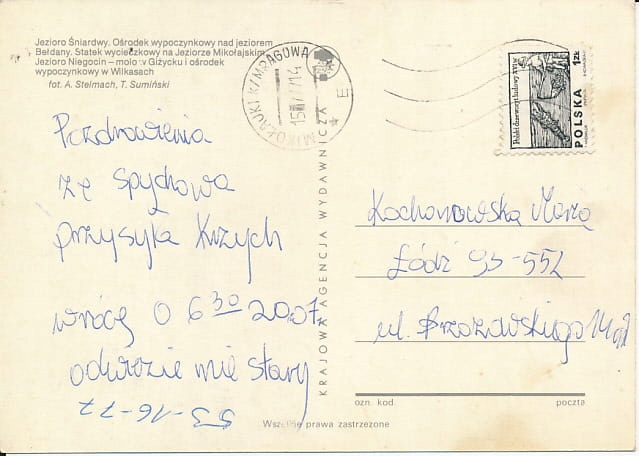 Jezioro Śniardwy. Ośrodek wypoczynkowy nad jeziorem
Bełdany. Statek wycieczkowy na Jeziorze Mikołajskim.
Jezioro Niegocin – molo w Giżycku i ośrodek
wypoczynkowy w Wilkasach
fot. A. Stelmach, T. Sumiński
MIKOŁAJKI K/MRĄGOWA
E
Polski drzeworyt ludowy XVI w.
POLSKA 1 ZŁ
Pozdrowienia
ze Spychowa
przysyła Krzych
wrócę o 6 30 20.07.
odwiezie mnie Stary
53-16-77
KRAJOWA AGENCJA WYDAWNICZA
Kochanowska Maria
Łódź 93-552
ul. Brzozowskiego
ozn. kod.
poczta
Wszelkie prawa zastrzeżone